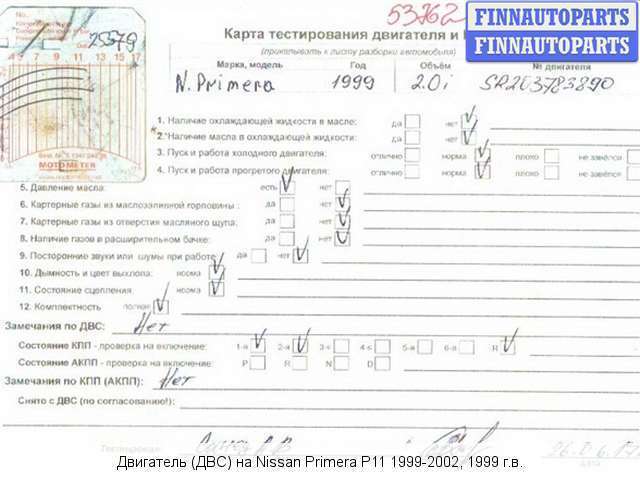 53762
FINNAUTOPARTS
FINNAUTOPARTS
No.
25579
4 5 7 9 11 13 15 17
MOTOMETER
Карта тестирования двигателя и
(прикалывать к листу разборки автомобиля)
Марка, модель Год Объём № двигателя
N. Primera 1999 2.0i SR203783890
1. Наличие охлаждающей жидкости в масле: да нет
2. Наличие масла в охлаждающей жидкости: да нет
3. Пуск и работа холодного двигателя: отлично норма плохо не завёлся
4. Пуск и работа прогретого двигателя: отлично норма плохо не завёлся
5. Давление масла: есть нет
6. Картерные газы из маслозаливной горловины : да нет
7. Картерные газы из отверстия масляного щупа: да нет
8. Наличие газов в расширительном бачке: да нет
9. Посторонние звуки или шумы при работе: да нет
10. Дымность и цвет выхлопа: норма
11. Состояние сцепления: норма
12. Комплектность полная
Замечания по ДВС: Нет
Состояние КПП - проверка на включение: 1-я 2-я 3-я 4-я 5-я 6-я R
Состояние АКПП - проверка на включение: P R N D
Замечания по КПП (АКПП): Нет
Снято с ДВС (по согласованию!):
Двигатель (ДВС) на Nissan Primera P11 1999-2002, 1999 г.в.